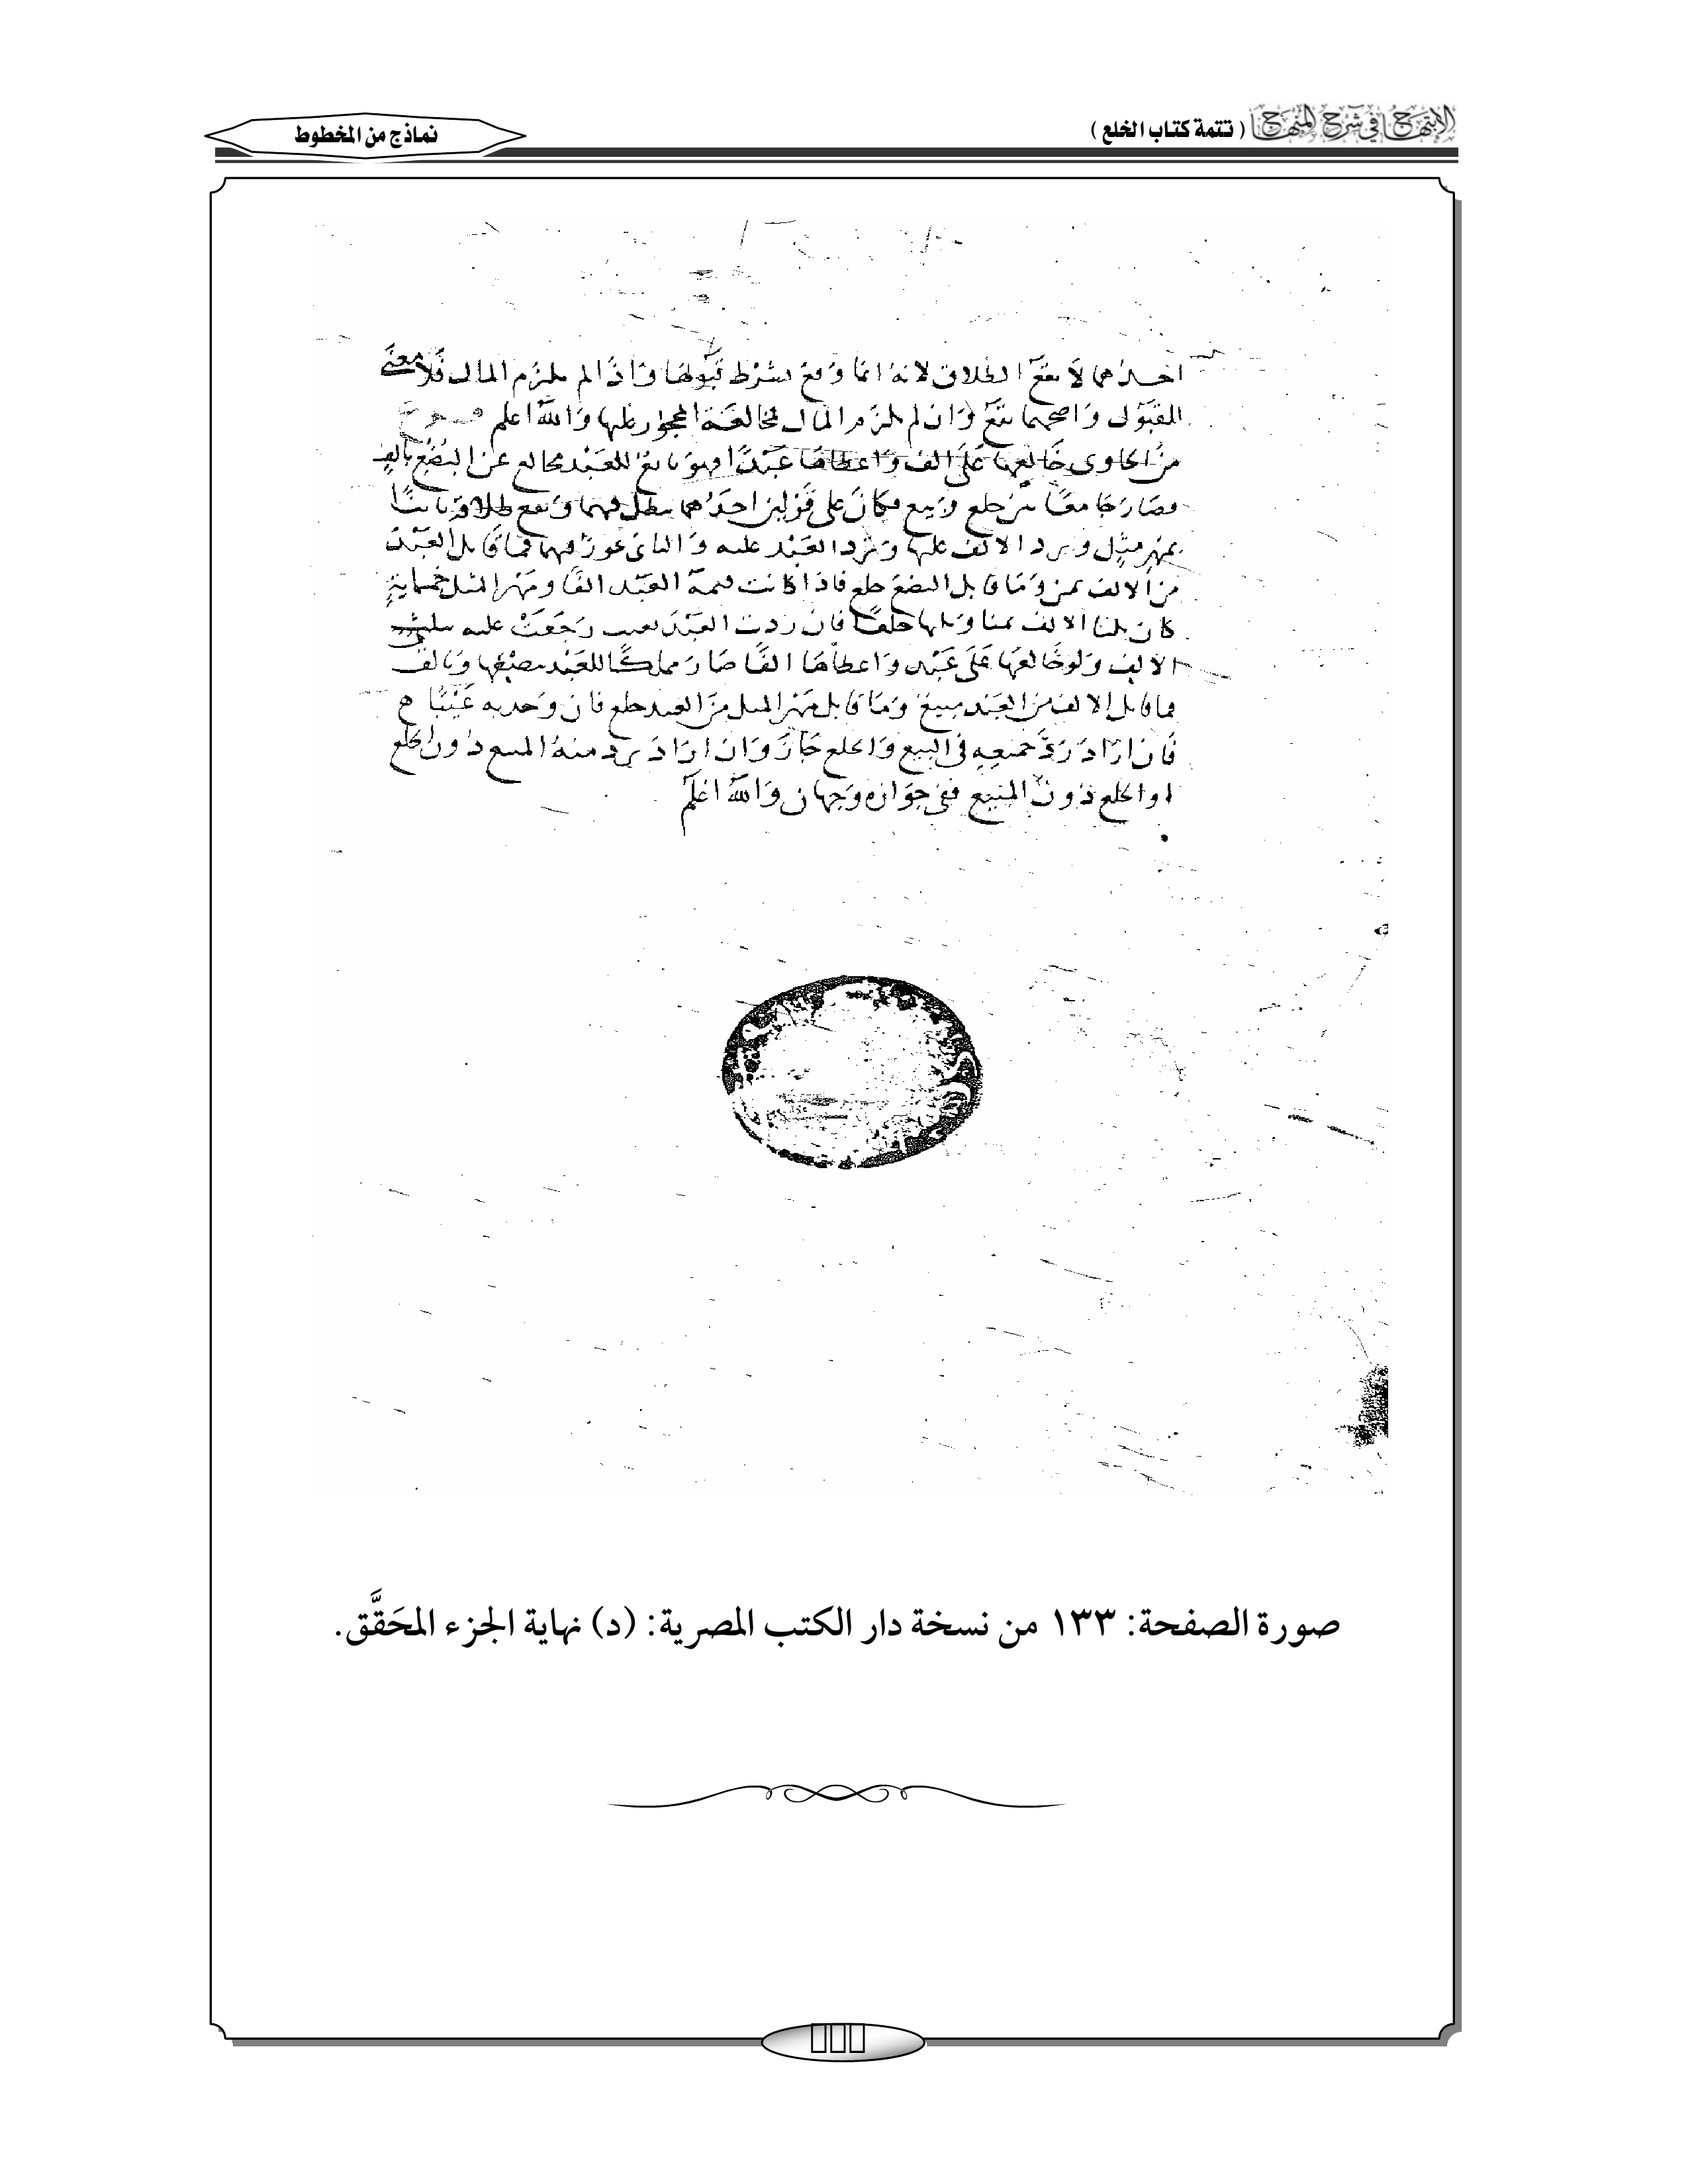 الابتهاج في شرح المنهاج ( تتمة كتاب الخلع )
نماذج من المخطوط
احدهما لا يقع الطلاق لانه انما وقع بشرط قبولها واذا لم يلزم المال فلا معنى
للقبول واصحهما يقع وان لم يلزم المال لمخالفة المحجور عليها والله اعلم
من الحاوى خالعها على الف واعطاها عبدا فهو بائع للعبد مخالع عن البضع بالف
وصار جامعا بين خلع وبيع فكان على قولين احدهما يبطل فيهما ويقع طلاقه بائنا
بمهر مثل ويرد الالف عليها وترد العبد عليه والثانى يجوز فيهما فما قابل العبد
من الالف ثمن وما قابل البضع خلع فاذا كانت قيمة العبد الفا ومهر المثل خمسماية
كان ثلثا الالف ثمنا وثلثها خلعا فان ردت العبد بعيب رجعت عليه بثلثى
الالف ولو خالعها على عبد واعطاها الفا صار مملكا للعبد ببضعها وبالف
فما قابل الالف من العبد مبيع وما قابل مهر المثل من العبد خلع فان وجد به عيبا
فان اراد رد جميعه فى البيع والخلع جاز وان اراد يرد منه المبيع دون الخلع
او الخلع دون المبيع ففى جوازه وجهان والله اعلم
صورة الصفحة: ١٣٣ من نسخة دار الكتب المصرية: (د) نهاية الجزء المحَقَّق.